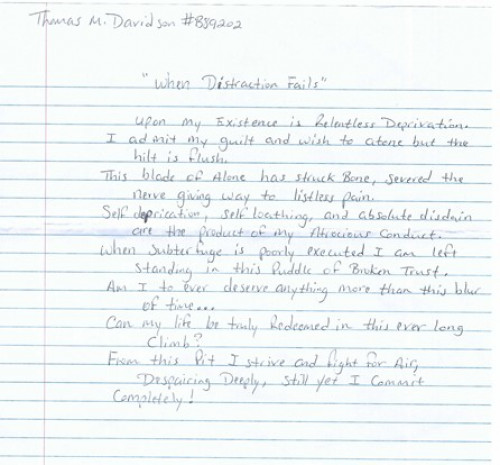 Thomas M. Davidson #889202
"When Distraction Fails"
Upon my Existence is Relentless Deprivation.
I admit my guilt and wish to atone but the
hilt is flush.
This blade of Alone has struck Bone, severed the
nerve giving way to listless pain.
Self deprication, self loathing, and absolute disdain
are the product of my Atrocious Conduct.
When Subterfuge is poorly executed I am left
Standing in this Puddle of Broken Trust.
Am I to ever deserve anything more than this blur
of time...
Can my life be truly Redeemed in this ever long
Climb?
From this Pit I strive and fight for Air,
Despairing Deeply, still yet I Commit
Completely!